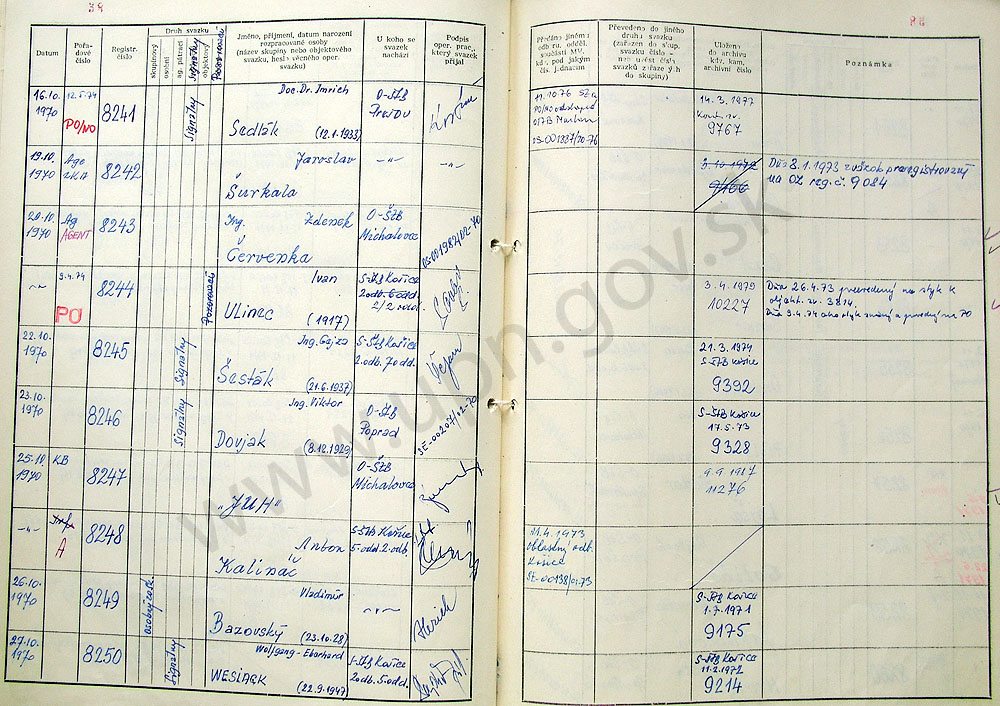 38
Datum
Pořadové číslo
Registr. číslo
Druh svazku
skupinový
osobní
ag. pátrací
Signálny
objektový
Pozorovací
Jméno, příjmení, datum narození
rozpracované osoby
(název skupiny nebo objektového
svazku, heslo věcného oper.
svazku)
U koho se
svazek
nachází
Podpis
oper. prac.,
který svazek
přijal
16.10.
1970
12.5.74
PO/NO
8241
Signálny
Doc. Dr. Imrich
Sedlák (12.1.1933)
O-ŠtB
Prešov
19.10.
1970
8242
Jaroslav
Šurkala
-"-
-"-
20.10.
1970
Ag
AGENT
8243
Ing. Zdenek
Červenka
O-ŠtB
Michalovce
OS-001982/02-70
-"-
9.4.74
PO
8244
Pozorovací
Ivan
Ulinec
(1917)
S-ŠtB Košice
2odb. 6odd
22.10.
1970
8245
Signálny
Ing. Gejza
Šesták
(21.6.1937)
S-ŠtB Košice
2.odb. 7odd.
23.10.
1970
8246
Signálny
Ing. Viktor
Dovjak (8.12.1929)
O-ŠtB
Poprad
SE-00207/02-70
25.10.
1970
KB
8247
"JUH"
O-ŠtB
Michalovce
-"-
A
8248
Anton
Kalináč
S-ŠtB Košice
5.odd. 2.odb.
26.10.
1970
8249
osobný
Vladimír
Bazovský (23.10.28)
-"-
27.10.
1970
8250
Signálny
Wolfgang-Eberhard
WESIARK
(22.9.1947)
S-ŠtB Košice
2odb. 5.odd.
Předáno jinému
odb ru, odděl.
součásti MV,
kdy, pod jakým
čís. jednacím
Převedeno do jiného
druhu svazku
(zařazen do skup.
svazku číslo –
Uloženo
do archivu
kdy, kam,
archivní číslo
Poznámka
11.10.76
Martin
OS-001837/20-76
14.3.1977
9767
Dňa 8.1.1973 zväzok preregistrovaný
na OZ reg. č. 9084
3.4.1979
10227
Dňa 26.4.73 prevedený na styk k
objekt. zv. 3814.
Dňa 9.4.74 ako styk zrušený a prevedený na PO
21.3.1974
S-ŠtB Košice
9392
S-ŠtB Košice
17.5.73
9328
9.9.1987
11276
11.4.1973
Oblastný odb.
Košice
SE-00138/01-73
S-ŠtB Košice
1.7.1971
9175
S-ŠtB Košice
11.2.1972
9214
www.upn.gov.sk